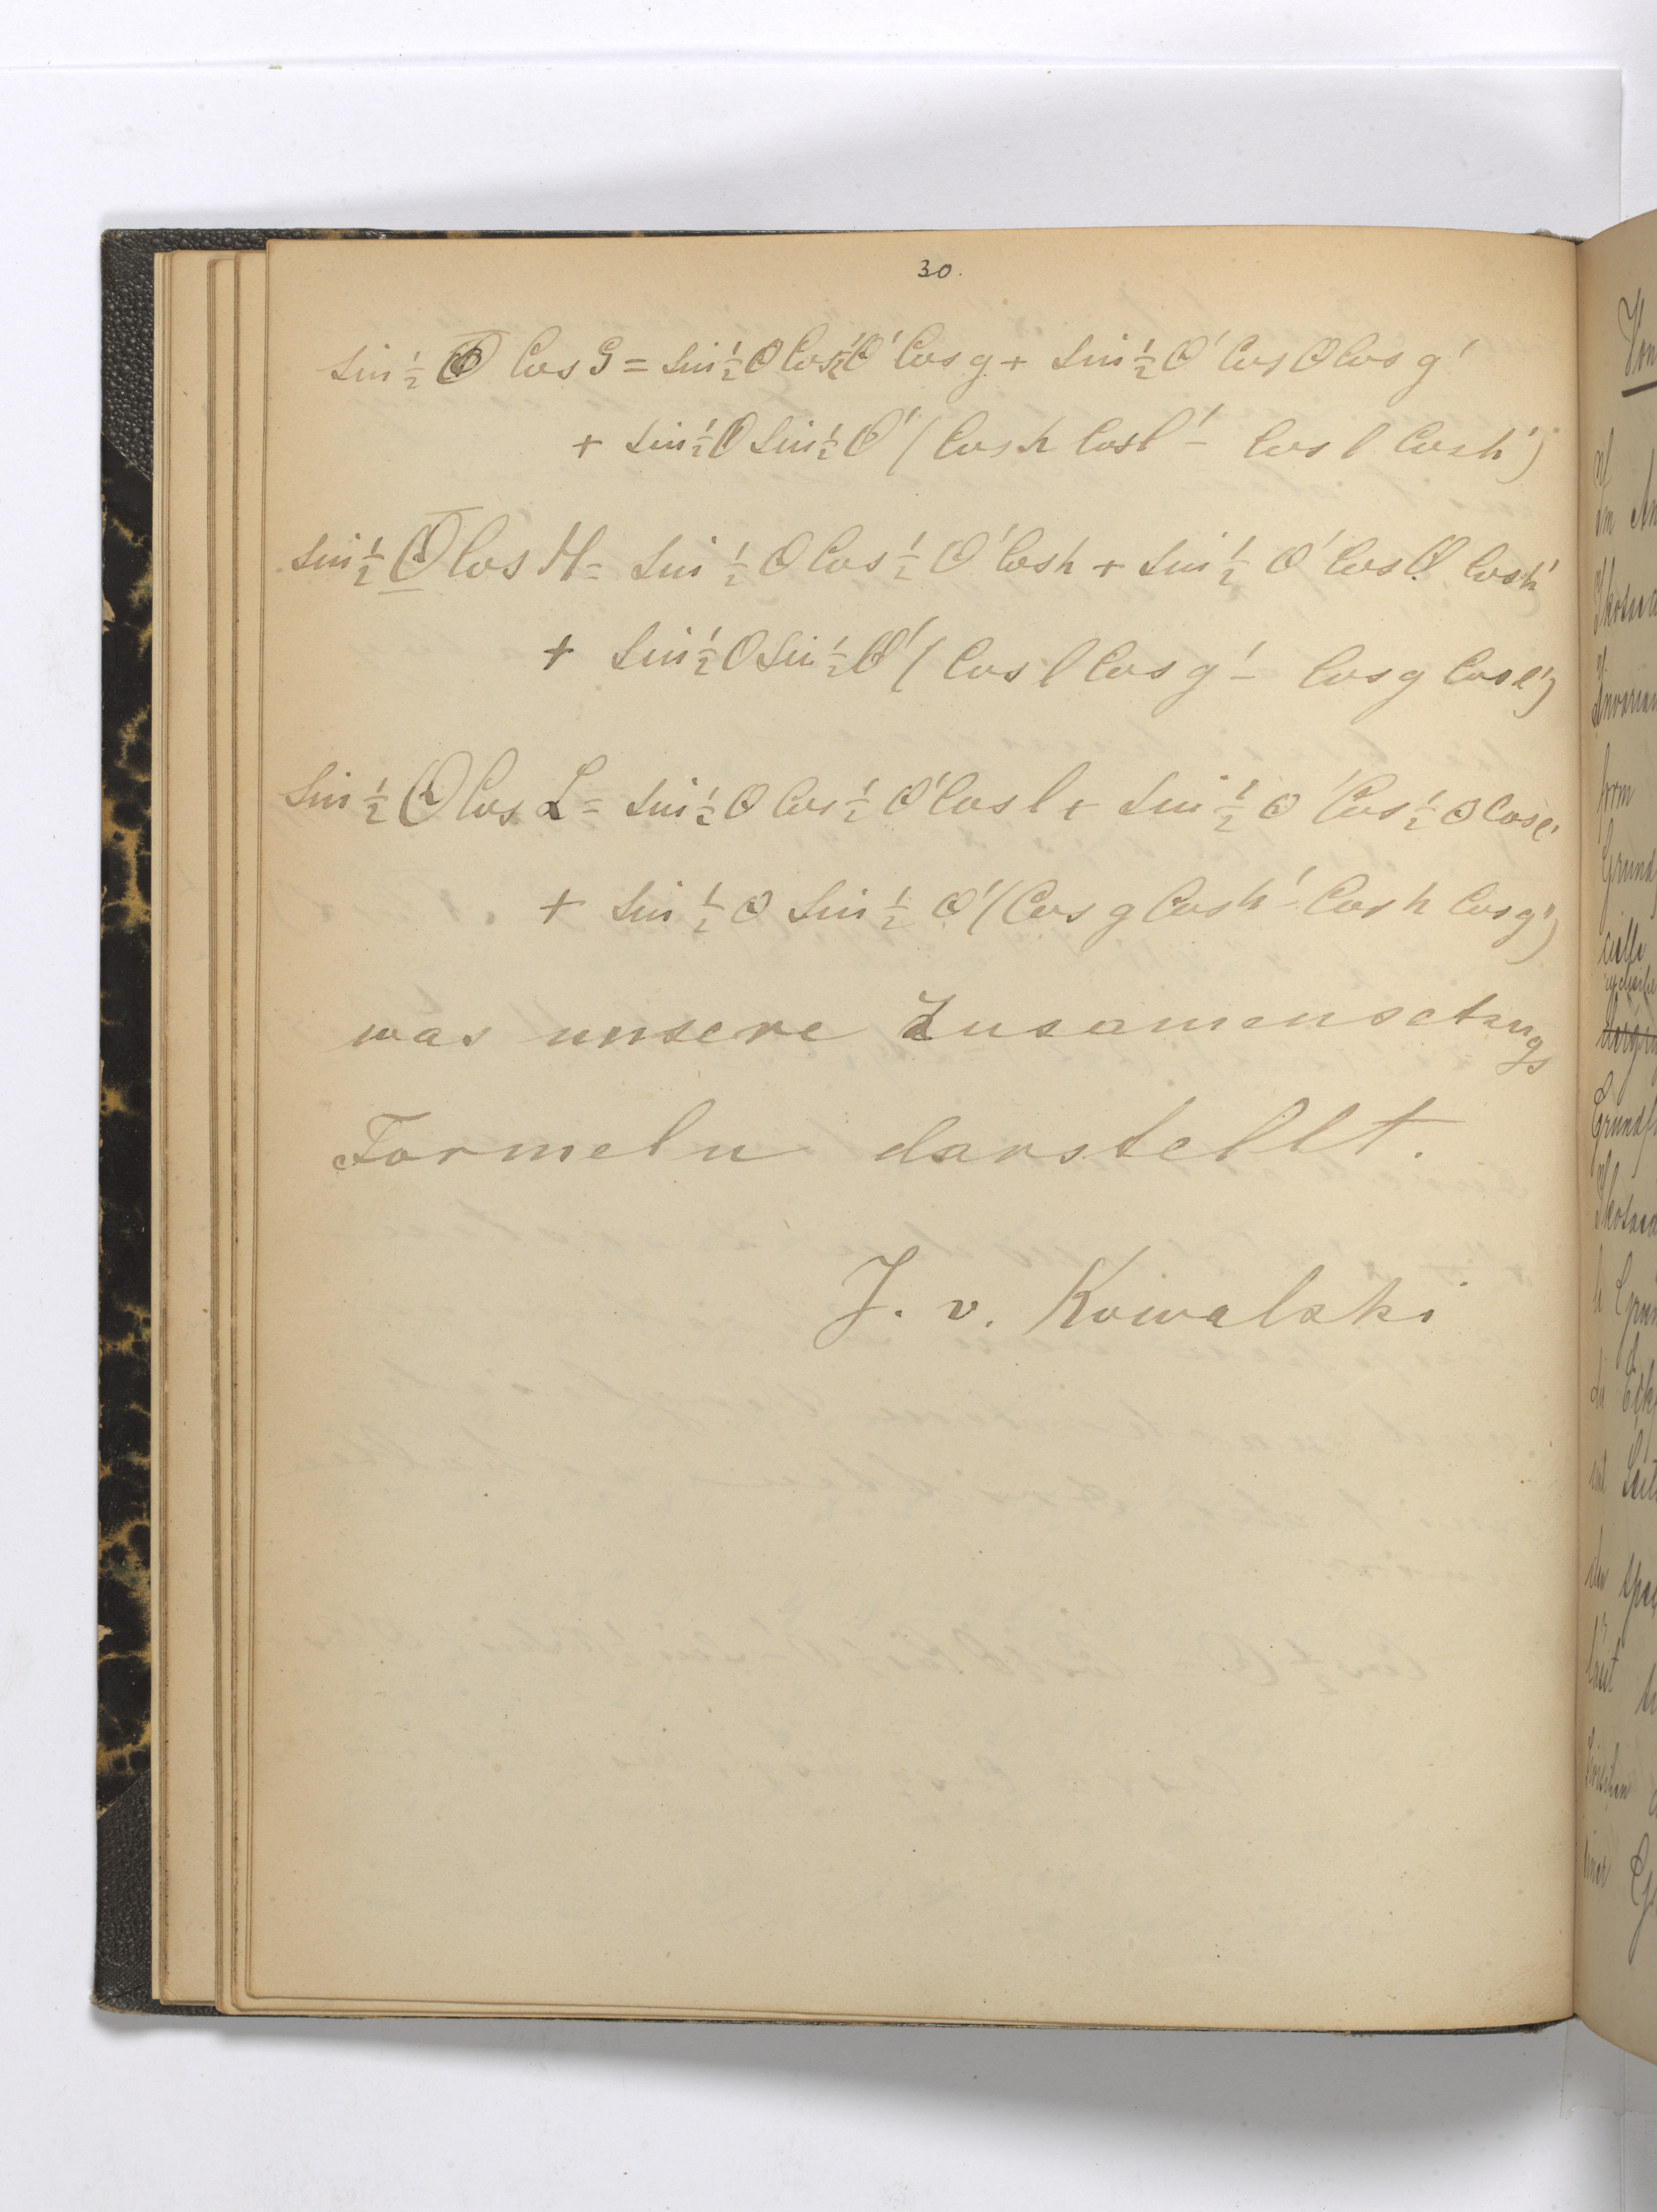 30.
sin ½ Θ Cos G = sin ½ θ Cos ½ θ' Cos g + sin ½ θ' Cos θ Cos g'
+ sin ½ θ sin ½ θ' (Cos h Cos l' - Cos l Cos h')
sin ½ Θ Cos H = sin ½ θ Cos ½ θ' Cos h + sin ½ θ' Cos θ Cos h'
+ sin ½ θ sin ½ θ' (Cos l Cos g' - Cos g Cos l')
sin ½ Θ Cos L = sin ½ θ Cos ½ θ' Cos l + sin ½ θ' Cos ½ θ Cos l'
+ sin ½ θ sin ½ θ' (Cos g Cos h' - Cos h Cos g')
was unsere Zusamensetzungs
Formeln darstellt.
J. v. Kowalski
Von
Grund